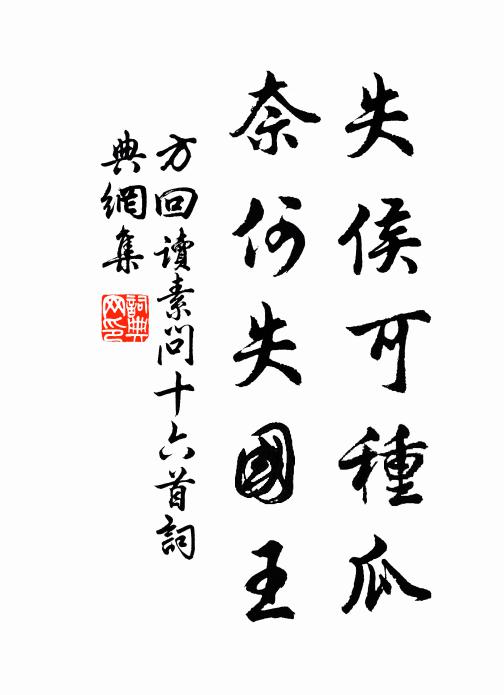 失侯可種瓜
奈何失國王
方回讀素問十六首詞
典網集
詞典网印